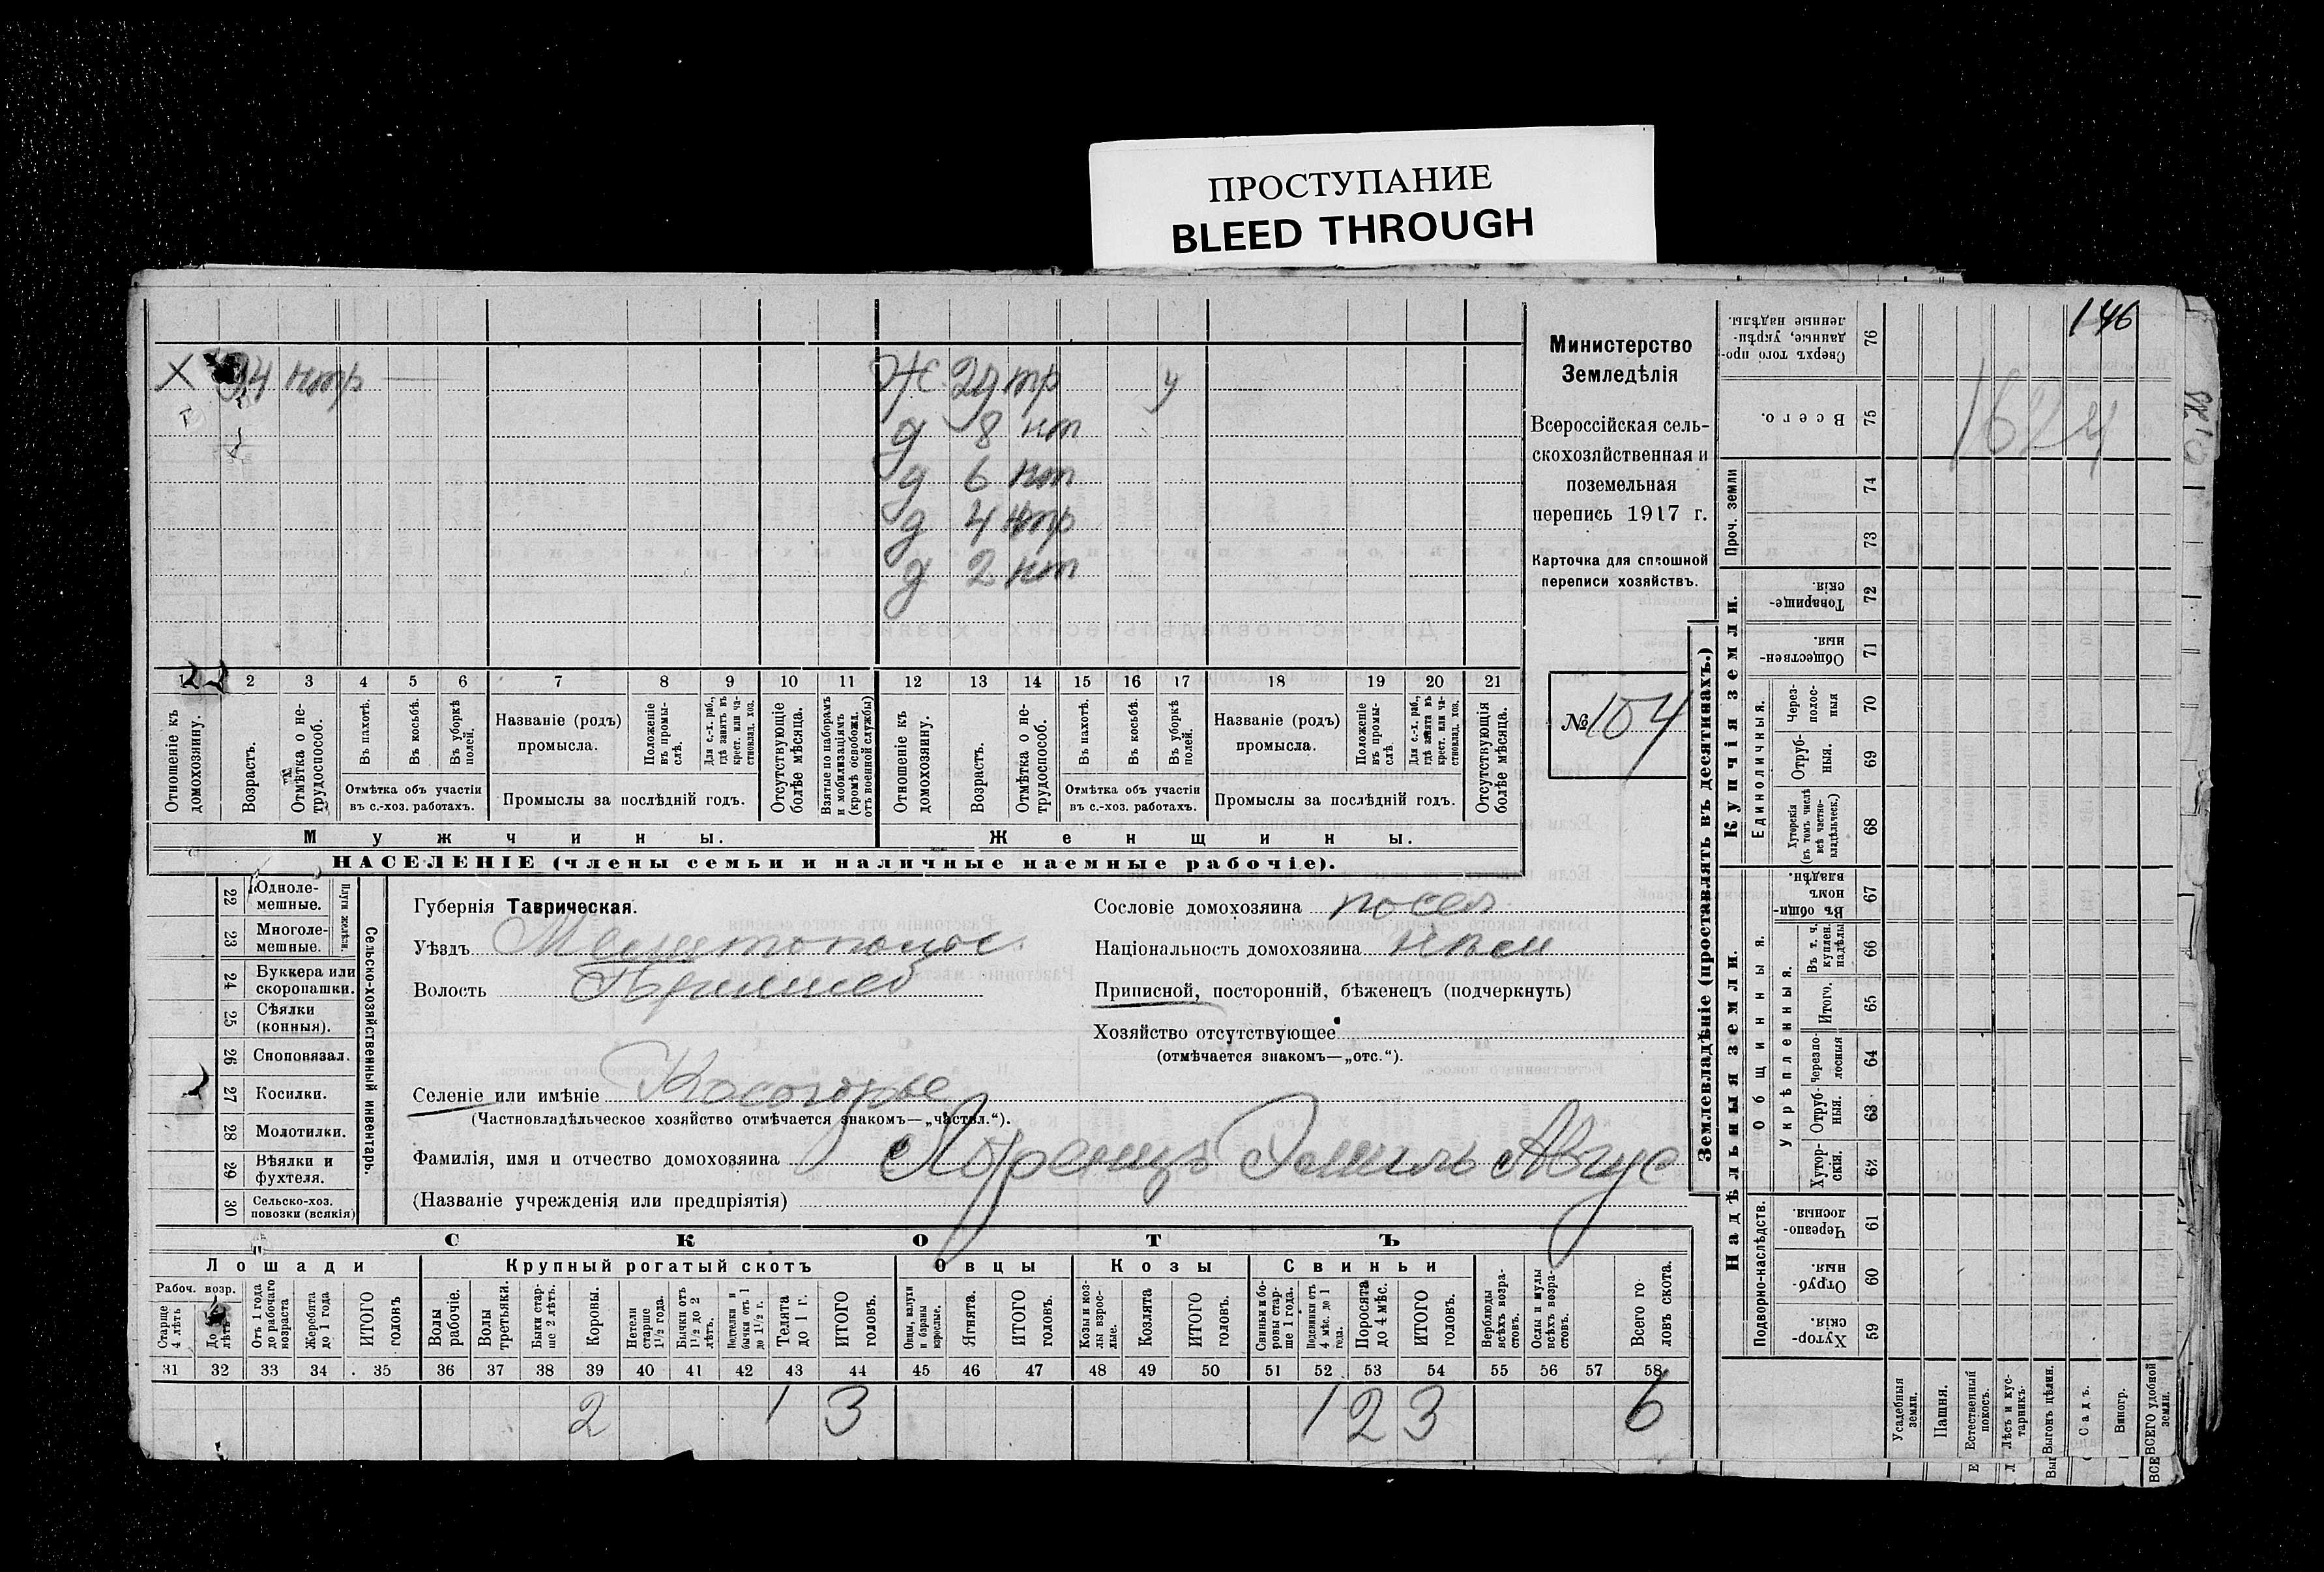 ПРОСТУПАНИЕ
BLEED THROUGH
146
Х 34 нтр
Ж. 29 тр у
д 8 нт
д 6 нт
д 4 нтр
д 2 нт
1 2 3 4 5 6 7 8 9 10 11 12 13 14 15 16 17 18 19 20 21
Отношеніе къ домохозяину.
Возрастъ.
Отмѣтка о нетрудоспособ.
Въ пахотѣ.
Въ косьбѣ.
Въ уборкѣ полей.
Отмѣтка объ участіи
въ с.-хоз. работахъ.
Названіе (родъ)
промысла.
Положеніе въ промыслѣ.
Для с.-х. раб., гдѣ занятъ въ крест. или частновлад. хоз.
Промыслы за послѣдній годъ.
Отсутствующіе болѣе мѣсяца.
Взятые по наборамъ и мобилизаціямъ (кромѣ освобожд. отъ военной службы)
Отношеніе къ домохозяину.
Возрастъ.
Отмѣтка о нетрудоспособ.
Въ пахотѣ.
Въ косьбѣ.
Въ уборкѣ полей.
Отмѣтка объ участіи
въ с.-хоз. работахъ.
Названіе (родъ)
промысла.
Положеніе въ промыслѣ.
Для с.-х. раб., гдѣ занята въ крест. или частновлад. хоз.
Промыслы за послѣдній годъ.
Отсутствующія болѣе мѣсяца.
Мужчины.
Женщины.
НАСЕЛЕНІЕ (члены семьи и наличные наемные рабочіе).
Министерство
Земледѣлія
Всероссійская сель-
скохозяйственная и
поземельная
перепись 1917 г.
Карточка для сплошной
переписи хозяйствъ.
№ 104
22 Одноле-
мешные.
23 Многоле-
мешные.
Плуги желѣзн.
24 Буккера или
скоропашки.
25 Сѣялки
(конныя).
26 Сноповязал.
27 Косилки.
28 Молотилки.
29 Вѣялки и
фухтеля.
30 Сельско-хоз.
повозки (всякія)
Сельско-хозяйственный инвентарь.
Губернія Таврическая.
Уѣздъ Мелитопольс.
Волость Пришиб
Селеніе или имѣніе Косогорье
(Частновладѣльческое хозяйство отмѣчается знакомъ—„частвл.“).
Фамилія, имя и отчество домохозяина Лоренцъ Эмиль Авгус
(Названіе учрежденія или предпріятія)
Сословіе домохозяина посел
Національность домохозяина нѣм
Приписной, посторонній, бѣженецъ (подчеркнуть)
Хозяйство отсутствующее
(отмѣчается знакомъ—„отс.“).
СКОТЪ
Лошади
Крупный рогатый скотъ
Овцы
Козы
Свиньи
Рабоч. возр.
Старше 4 лѣтъ
До 4 лѣтъ
Отъ 1 года до рабочаго возраста
Жеребята до 1 года
ИТОГО головъ
Волы рабочіе.
Волы третьяки.
Быки старше 2 лѣтъ.
Коровы.
Нетели старше 1½ года.
Бычки отъ 1½ до 2 лѣтъ.
Подтелки и бычки отъ 1 до 1½ г.
Телята до 1 г.
ИТОГО головъ.
Овцы, валухи и бараны взрослые.
Ягнята.
ИТОГО головъ.
Козы и козлы взрослые.
Козлята
ИТОГО головъ.
Свиньи и боровы старше 1 года.
Подсвинки отъ 4 мѣс. до 1 года.
Поросята до 4 мѣс.
ИТОГО головъ.
Верблюды всѣхъ возрастовъ.
Ослы и мулы всѣхъ возрастовъ.
Всего головъ скота.
31 32 33 34 35 36 37 38 39 40 41 42 43 44 45 46 47 48 49 50 51 52 53 54 55 56 57 58
2 1 3 1 2 3 6
Землевладѣніе (проставлять въ десятинахъ.)
Надѣльныя земли.
Купчія земли.
Проч. земли
Подворно-наслѣдств.
Общинныя.
Укрѣпленныя.
Единоличныя.
76 Сверхъ того проданные, укрѣпленные надѣлы.
75 Всего.
74
73
72 Товарищескія.
71 Общественныя.
70 Черезполосныя
69 Отрубныя.
68 Хуторскія (въ томъ числѣ всѣ частновладѣльческ.)
67 Въ общинномъ владѣн.
66 Въ т. ч. куплен. надѣлы
65 Итого.
64 Черезполосныя
63 Отрубныя.
62 Хуторскія.
61 Черезполосныя.
60 Отрубныя.
59 Хуторскія.
Усадебныя земли.
Пашня.
Естественный покосъ.
Лѣсъ и кустарникъ.
Выгонъ цѣлин.
Садъ.
Виногр.
ВСЕГО удобной земли.